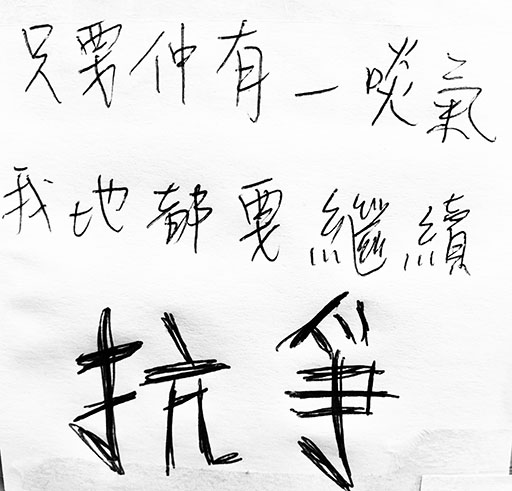 只要仲有一啖氣
我地都要繼續
抗爭